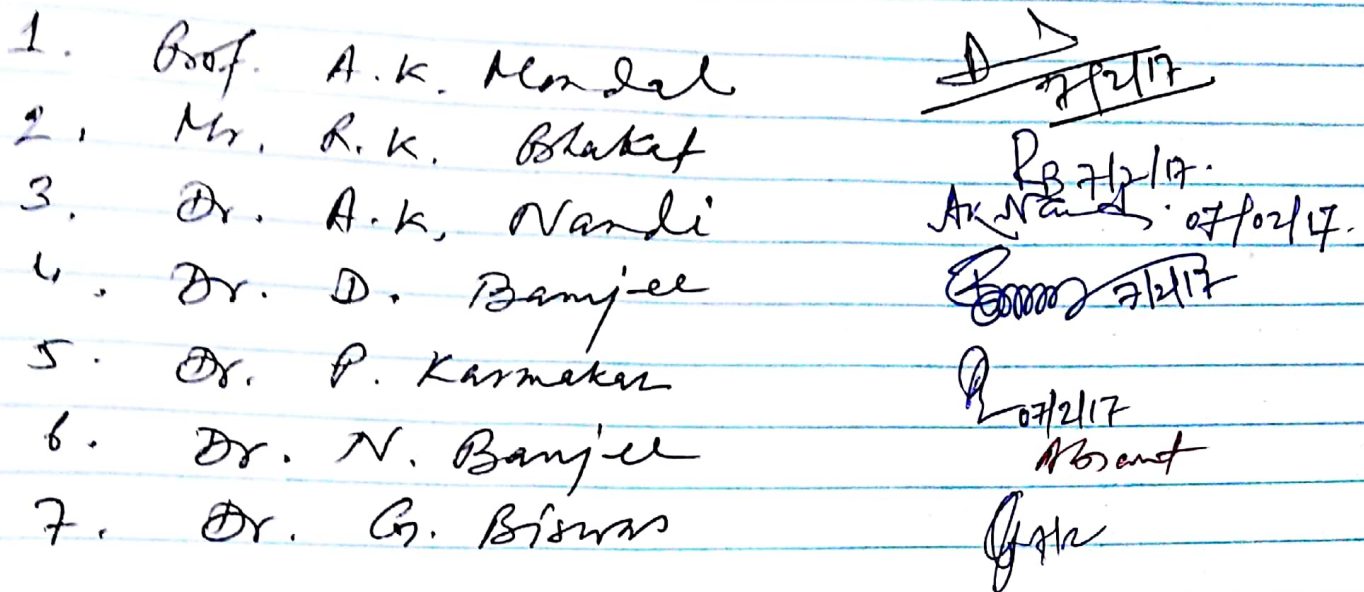 1. Prof. A.K. Mondal 7/2/17
2. Mr. R.K. Bhakat RB 7/2/17.
3. Dr. A.K. Nandi AK Nandi 07/02/17.
4. Dr. D. Banerjee 7/2/17
5. Dr. P. Karmakar 07/2/17
6. Dr. N. Banerjee Absent
7. Dr. G. Biswas 7/2